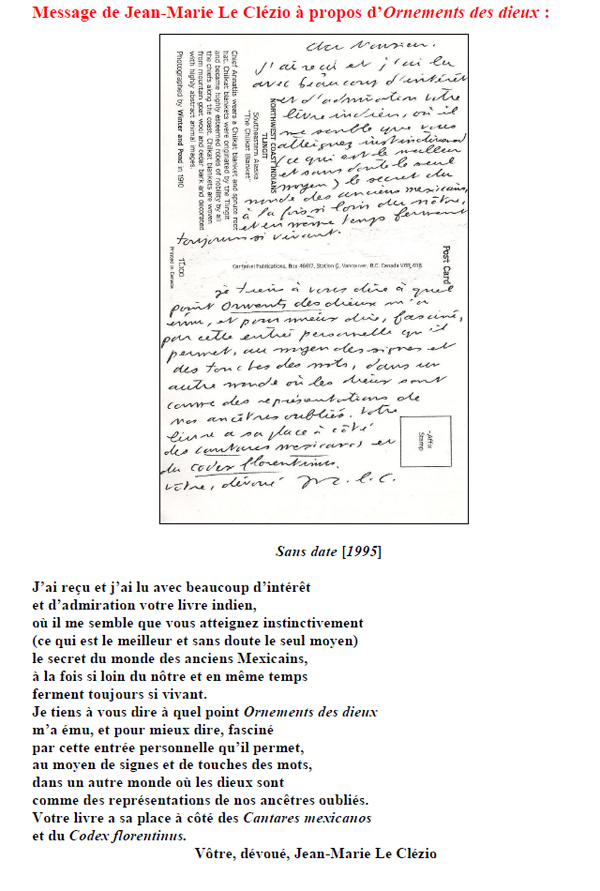 Message de Jean-Marie Le Clézio à propos d’Ornements des dieux :
Cher Monsieur.
J'ai reçu et j'ai lu
avec beaucoup d'intérêt
et d'admiration votre
livre indien, où il
me semble que vous
atteignez instinctivement
(ce qui est le meilleur
et sans doute le seul
moyen) le secret du
monde des anciens mexicains,
à la fois si loin du nôtre,
et en même temps ferment
toujours si vivant.
NORTHWEST COAST INDIANS
TLINGIT
Southeastern Alaska
"The Chilkat Blanket"
Chief Annatlis wears a Chilkat blanket and spruce root
hat. Chilkat blankets were originated by the Tlingit
and became highly esteemed robes of nobility by all
the chiefs along the coast. Chilkat blankets are woven
from mountain goat wool and cedar bark and decorated
with highly abstract animal images.
Photographed by Winter and Pond in 1910
Printed in Canada
Post Card
Publications, Box 46607, Station G, Vancouver, B.C. Canada
je tiens à vous dire à quel
point des dieux m'a
ému, et pour mieux dire, fasciné,
par cette entrée personnelle qu'il
permet, au moyen des signes et
des touches des mots, dans un
autre monde où les dieux sont
comme des représentations de
nos ancêtres oubliés. Votre
livre a sa place à côté
des Cantares mexicanos et
du codex florentinus.
Vôtre, dévoué
Affix
Stamp
Sans date [1995]
J’ai reçu et j’ai lu avec beaucoup d’intérêt
et d’admiration votre livre indien,
où il me semble que vous atteignez instinctivement
(ce qui est le meilleur et sans doute le seul moyen)
le secret du monde des anciens Mexicains,
à la fois si loin du nôtre et en même temps
ferment toujours si vivant.
Je tiens à vous dire à quel point Ornements des dieux
m’a ému, et pour mieux dire, fasciné
par cette entrée personnelle qu’il permet,
au moyen de signes et de touches des mots,
dans un autre monde où les dieux sont
comme des représentations de nos ancêtres oubliés.
Votre livre a sa place à côté des Cantares mexicanos
et du Codex florentinus.
Vôtre, dévoué, Jean-Marie Le Clézio